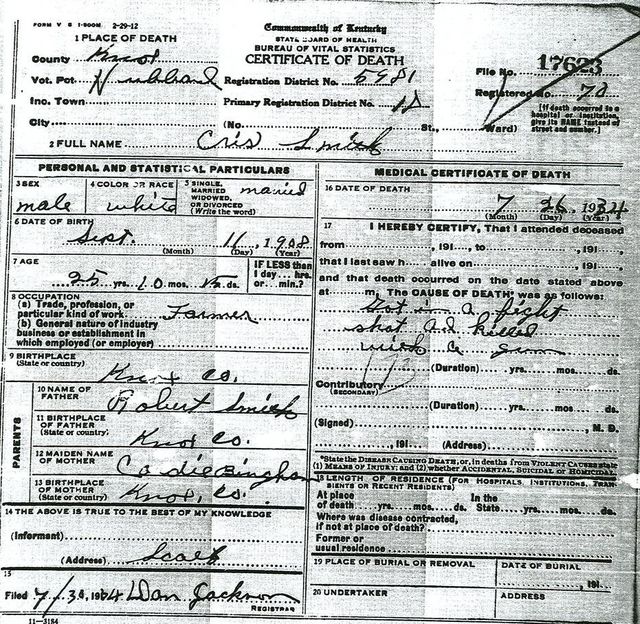 FORM V S 1-500M 2-29-12
Commonwealth of Kentucky
STATE BOARD OF HEALTH
BUREAU OF VITAL STATISTICS
CERTIFICATE OF DEATH
1 PLACE OF DEATH
County Knox
Vot. Pct.
Registration District No. 5981
File No. 17623
Inc. Town
Primary Registration District No.
Registered No. 70
City (No. St., Ward)
[If death occurred in a hospital or institution, give its NAME instead of street and number.]
2 FULL NAME Cris Smith
PERSONAL AND STATISTICAL PARTICULARS
3 SEX male
4 COLOR OR RACE white
5 SINGLE, MARRIED WIDOWED, OR DIVORCED (Write the word) married
6 DATE OF BIRTH
Sept. 11, 1908
(Month) (Day) (Year)
7 AGE
25 yrs. 10 mos. ds.
IF LESS than 1 day ... hrs. or ... min.?
8 OCCUPATION
(a) Trade, profession, or particular kind of work Farmer
(b) General nature of industry business or establishment in which employed (or employer)
9 BIRTHPLACE
(State or country) Knox Co.
PARENTS
10 NAME OF FATHER Robert Smith
11 BIRTHPLACE OF FATHER (State or country) Knox Co.
12 MAIDEN NAME OF MOTHER Bingham
13 BIRTHPLACE OF MOTHER (State or country) Knox, Co.
14 THE ABOVE IS TRUE TO THE BEST OF MY KNOWLEDGE
(Informant)
(Address) Scalf
15
Filed 7/30, 1934 Dan Jackson
REGISTRAR
11-3184
MEDICAL CERTIFICATE OF DEATH
16 DATE OF DEATH
7 26, 1934
(Month) (Day) (Year)
17 I HEREBY CERTIFY, That I attended deceased
from , 191 , to , 191 ,
that I last saw h alive on , 191 ,
and that death occurred on the date stated above
at m. The CAUSE OF DEATH, was as follows:
Got in a fight
shot and killed
with a gun
(Duration) yrs. mos. ds.
Contributory
(SECONDARY)
(Duration) yrs. mos. ds.
(Signed) , M. D.
, 191 (Address)
*State the DISEASE CAUSING DEATH, or, in deaths from VIOLENT CAUSES state (1) MEANS OF INJURY; and (2) whether ACCIDENTAL, SUICIDAL or HOMICIDAL.
18 LENGTH OF RESIDENCE (FOR HOSPITALS, INSTITUTIONS, TRANSIENTS OR RECENT RESIDENTS)
At place of death yrs. mos. ds. In the State yrs. mos. ds.
Where was disease contracted, if not at place of death?
Former or usual residence
19 PLACE OF BURIAL OR REMOVAL
DATE OF BURIAL
, 191
20 UNDERTAKER
ADDRESS